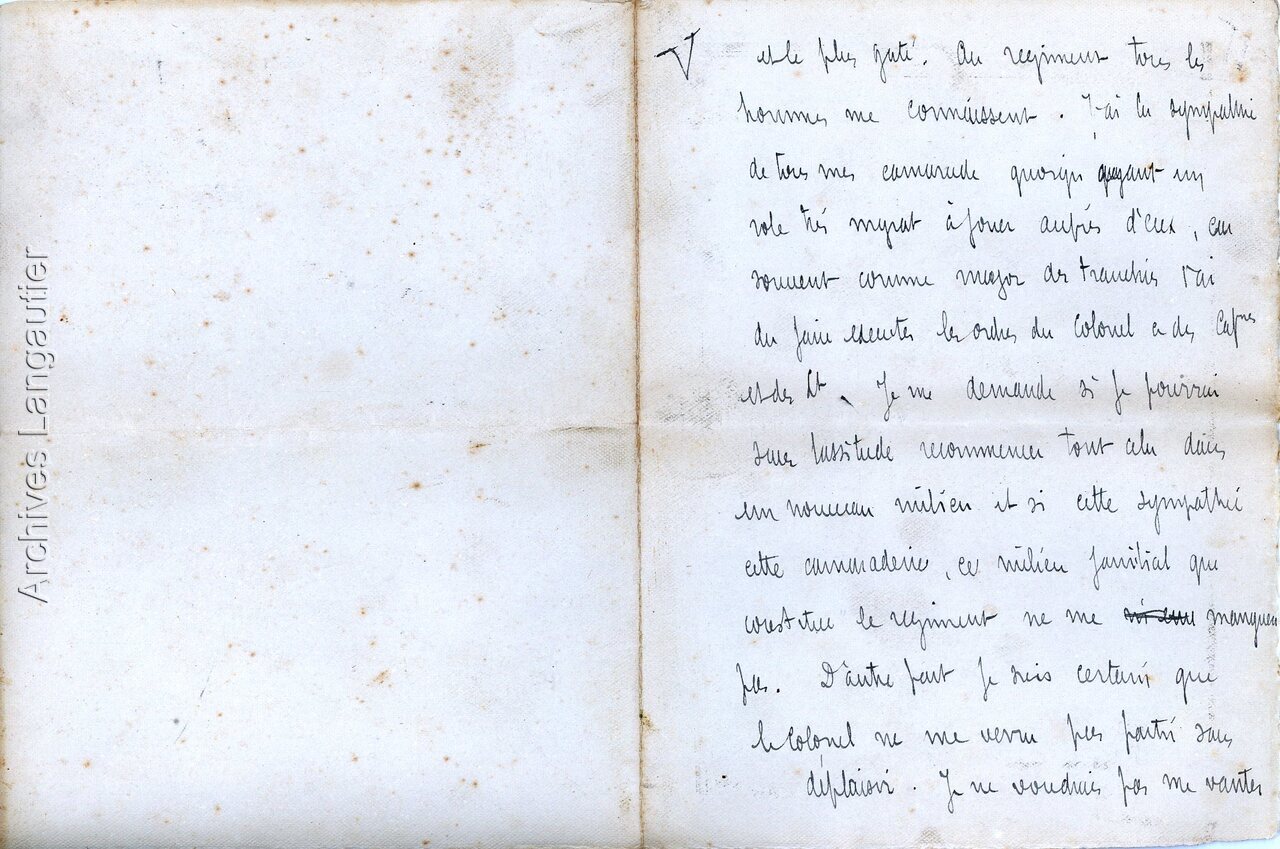 Archives Langautier
V
et le plus gaté. Au regiment tous les
hommes me connaissent. J'ai la sympathie
de tous mes camarade quoiqu' ayant un
role très ingrat à jouer auprès d'eux, car
souvent comme major de tranchées j'ai
du faire executer les ordres du Colonel et des Capnes
et des Lt. Je me demande si je pourrai
sans lassitude recommencer tout cela dans
un nouveau milieu et si cette sympathie
cette camaraderie, ce milieu familial que
constitue le regiment ne me manquera
pas. D'autre part je suis certain que
le Colonel ne me verra pas partir sans
déplaisir. Je ne voudrais pas me vanter